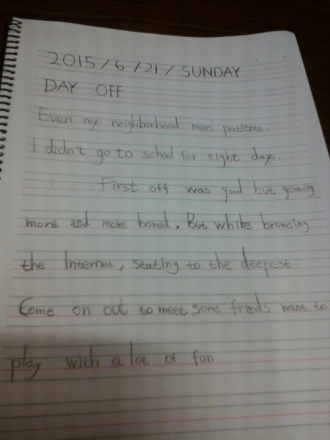 2015/6/21/SUNDAY
DAY OFF
Even my neighborhood mos patiens.
I didn't go to school for eight days.
First off was good but getting
more and more bored. But while browsing
the Internet, stating to the deepest
Come on out to meet some friends want to
play with a lot of fun